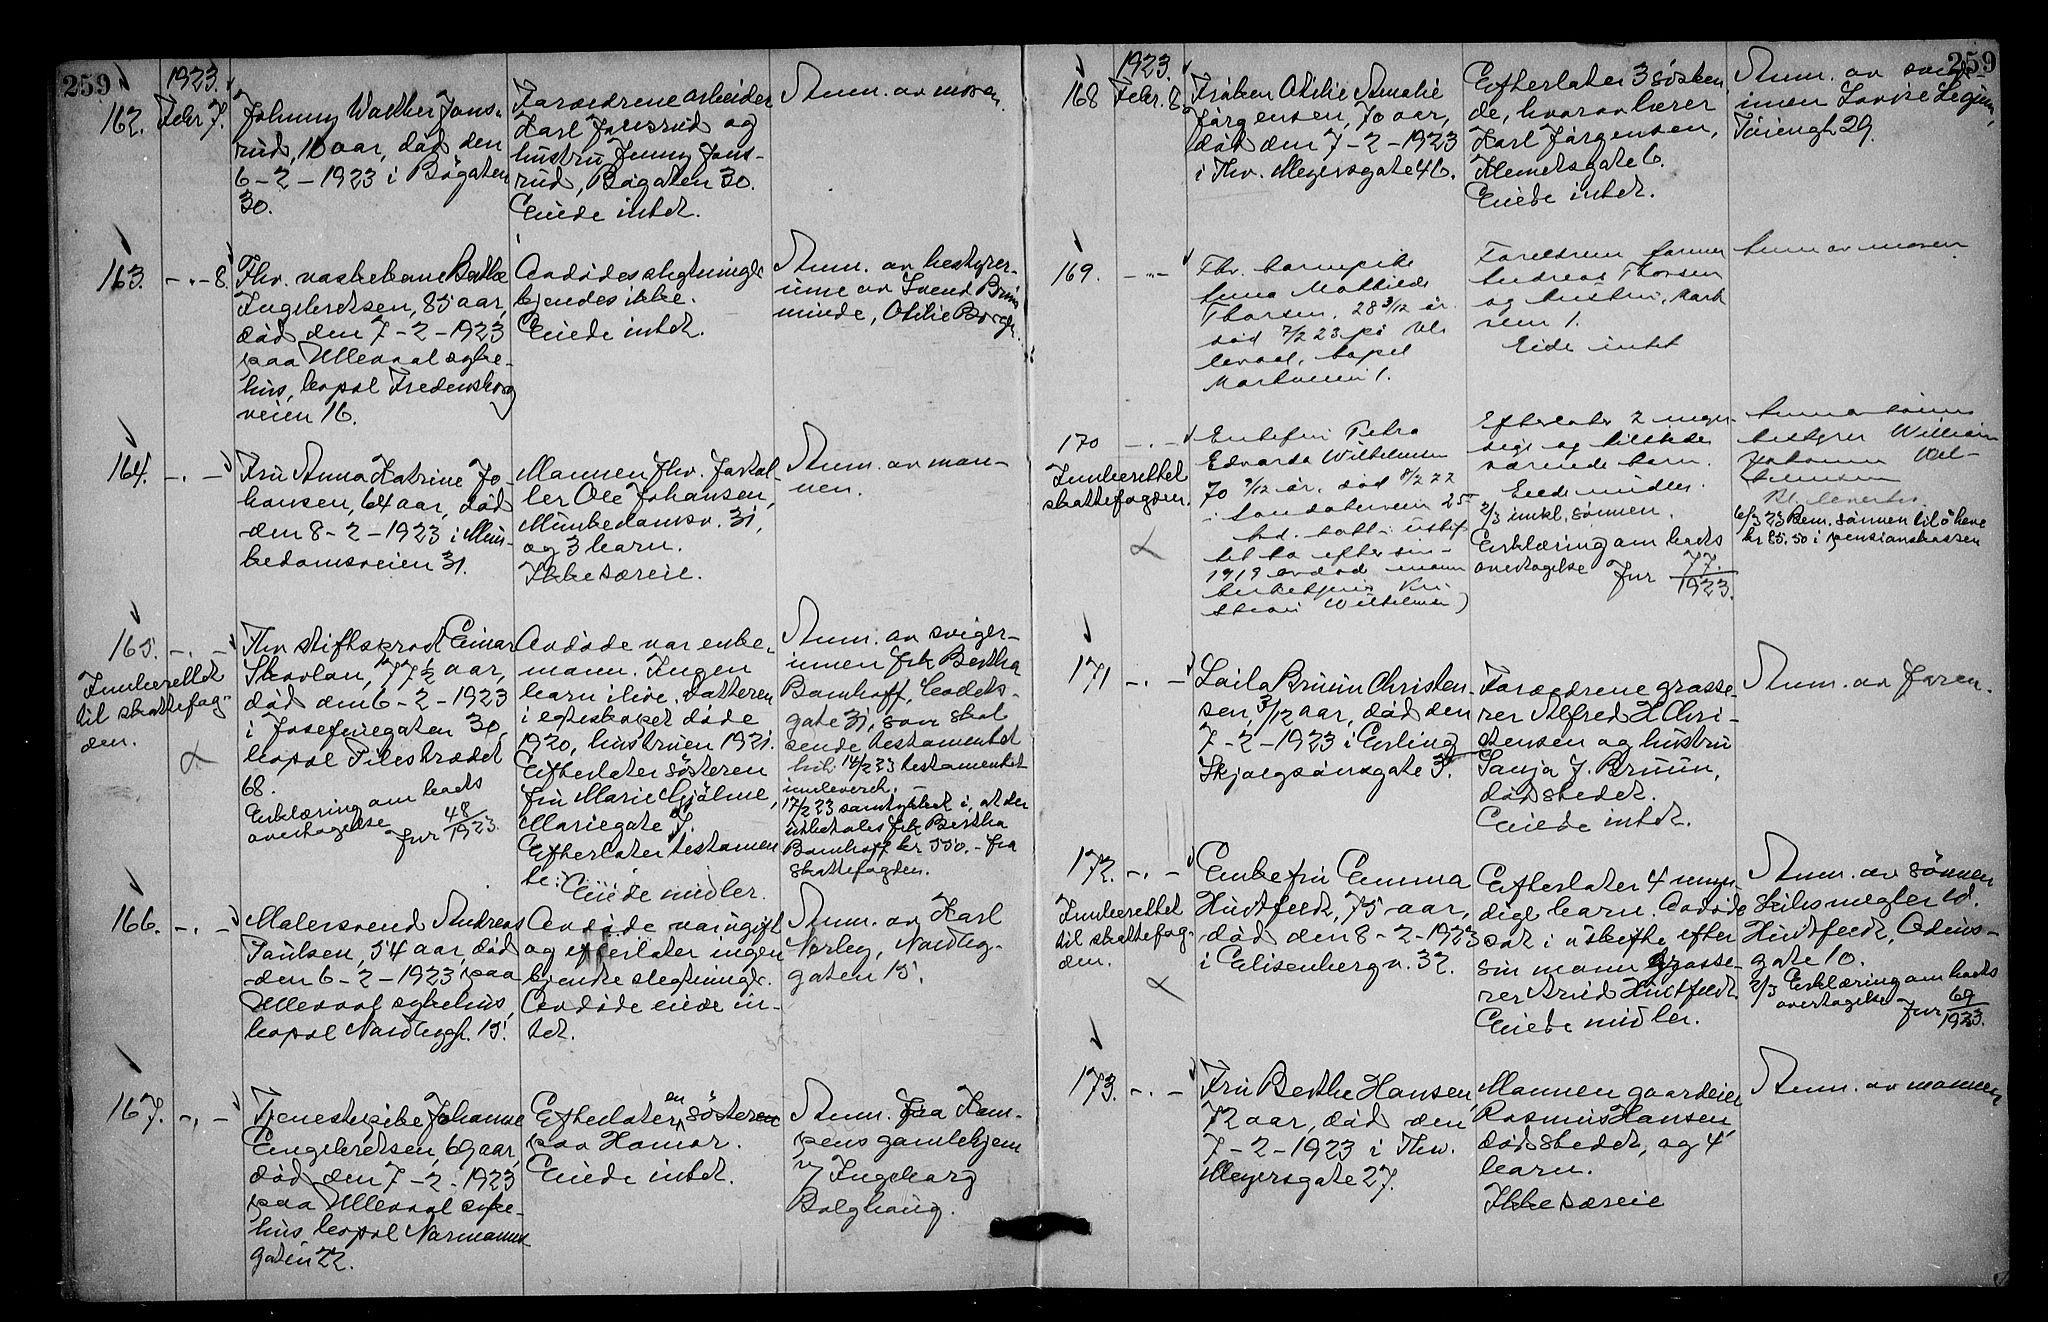 259
1923.
162. Febr. 7.
Johnny Walther Jons-
rud, 10 aar, død den
6-2-1923 i Bögaten
30.
Forældrene arbeider
Karl Jonsrud og
hustru Jenny Jons-
rud, Bögaten 30.
Eiede intet.
Anm. av moren.
163. -"- 8.
Fhv. vaskekone Berthe
Ingebretsen, 85 aar,
død den 7-2-1923
paa Ullevaal syke-
hus, bopæl Fredensborg
veien 16.
Avdødes slegtninger
kjendes ikke.
Eiede intet.
Anm. av bestyrer-
inne av Svend Brun
minde, Otilie Borge.
164. -"-
Fru Anna Katrine Jo-
hansen, 64 aar, død
den 8-2-1923 i Mun-
kedamsveien 31.
Mannen fhv.
ler Ole Johansen,
Munkedamsv. 31,
og 3 barn.
Ikke særeie.
Anm. av man-
nen.
165. -"-
Innberettet
til skattefog-
den.
Fhv stiftsprost Einar
Skavlan, 77 1/2 aar,
død den 6-2-1923
i Josefinegaten 30,
bopæl Pilestrædet
68.
Erklæring om boets
overtagelse
Jnr 48/1923.
Avdøde var enke-
mann. Ingen
barn i live. Datteren
i egteskapet døde
1920, hustruen 1921.
Efterlater søsteren
fru Marie Hjälme,
Mariegate 7.
Efterlater testamen
te. Eiede midler.
Anm. av sviger-
innen frk Bertha
Bomhoff,
gate 31, som skal
sende testamentet
hit. 14/2 23 testamentet
innleverk.
17/2 23 samtykket i, at der
utbetales frk Bertha
Bomhoff kr 550.- fra
skattefogden.
166. -"-
Malersvend Andreas
Paulsen, 54 aar, død
den 6-2-1923 paa
Ullevaal sykehus,
bopæl Nordbygt. 15.
Avdøde var ugift
og efterlater ingen
kjendte slegtninger.
Avdøde eiede in-
tet.
Anm. av Karl
Norby, Nordbyg-
gaten 15.
167. -"-
Tjenestepike Johanne
Engebretsen, 69 aar,
død den 7-2-1923
paa Ullevaal syke-
hus, bopæl Normanns
gaten 22.
Efterlater en søster
paa Hamar.
Eiede intet.
Anm. fra Kam-
pens gamlehjem
v/ Ingeborg
Bolghaug.
259
1923.
168 Febr. 8.
Frøken Otilie Amalie
Jørgensen, 70 aar,
død den 7-2-1923
i Thv. Meyersgate 46.
Efterlater 3 søsken
de, hvorav bror
Karl Jørgensen,
Klemetsgate 6.
Eiede intet.
Anm. av svige-
innen Lovise
Töiengt 29.
169. -"-
Fhv. barnepike
Anna Mathilde
Thorsen, 28 3/12 år
død 7/2 23 på Ul-
levaal, bopel
Markveien 1.
Foreldrene
Andreas Thorsen
og hustru, Mark
veien 1.
Eide intet
Anm av moren
170 -"-
Innberettet
skattefogden.
Enkefru Petra
Edvarda Wilhelmsen
70 9/12 år, død 8/2 22
i Sandakerveien 25
hd. satt i uskif
tet bo efter sin
1919 avdøde mann
Kri
stian Wilhelmsen)
Efterlater 2 myn-
dige og tilstede
værende barn.
Eide midler.
2/3 innkl. sønnen.
Erklæring om boets
overtagelse Jnr 77/1923.
Anm av sønnen
bestyrer William
Johannes Wil-
helmsen
6/3 23 Bem. sønnen til å heve
kr 85.50 i pensionskassen
171 -"-
Laila Bruun Christen-
sen, 3/12 aar, død den
7-2-1923 i Erling
Skjalgsønsgate 3.
Forældrene grosse-
rer Alfred H Chri-
stensen og hustru
Sanja f. Bruun,
dødstedet.
Eiede intet.
Anm. av faren.
172. -"-
Innberettet
til skattefog-
den.
Enkefru Emma
Huitfeldt, 75 aar,
død den 8-2-1923
i Elisenberg v. 32.
Efterlater 4 myn-
dige barn. Avdøde
sat i uskifte efter
sin mann grosse-
rer Arild Huitfeldt.
Eiede midler.
Anm. av sønnen
skibsmegler
Huitfeldt, Odins-
gate 10.
2/3 Erklæring om boets
overtagelse Jnr 69/1923.
173. -"-
Fru Berthe Hansen,
72 aar, død den
7-2-1923 i Thv.
Meyersgate 27.
Mannen gaardeier
Rasmus Hansen
dødstedet, og 4
barn.
Ikke særeie
Anm. av mannen